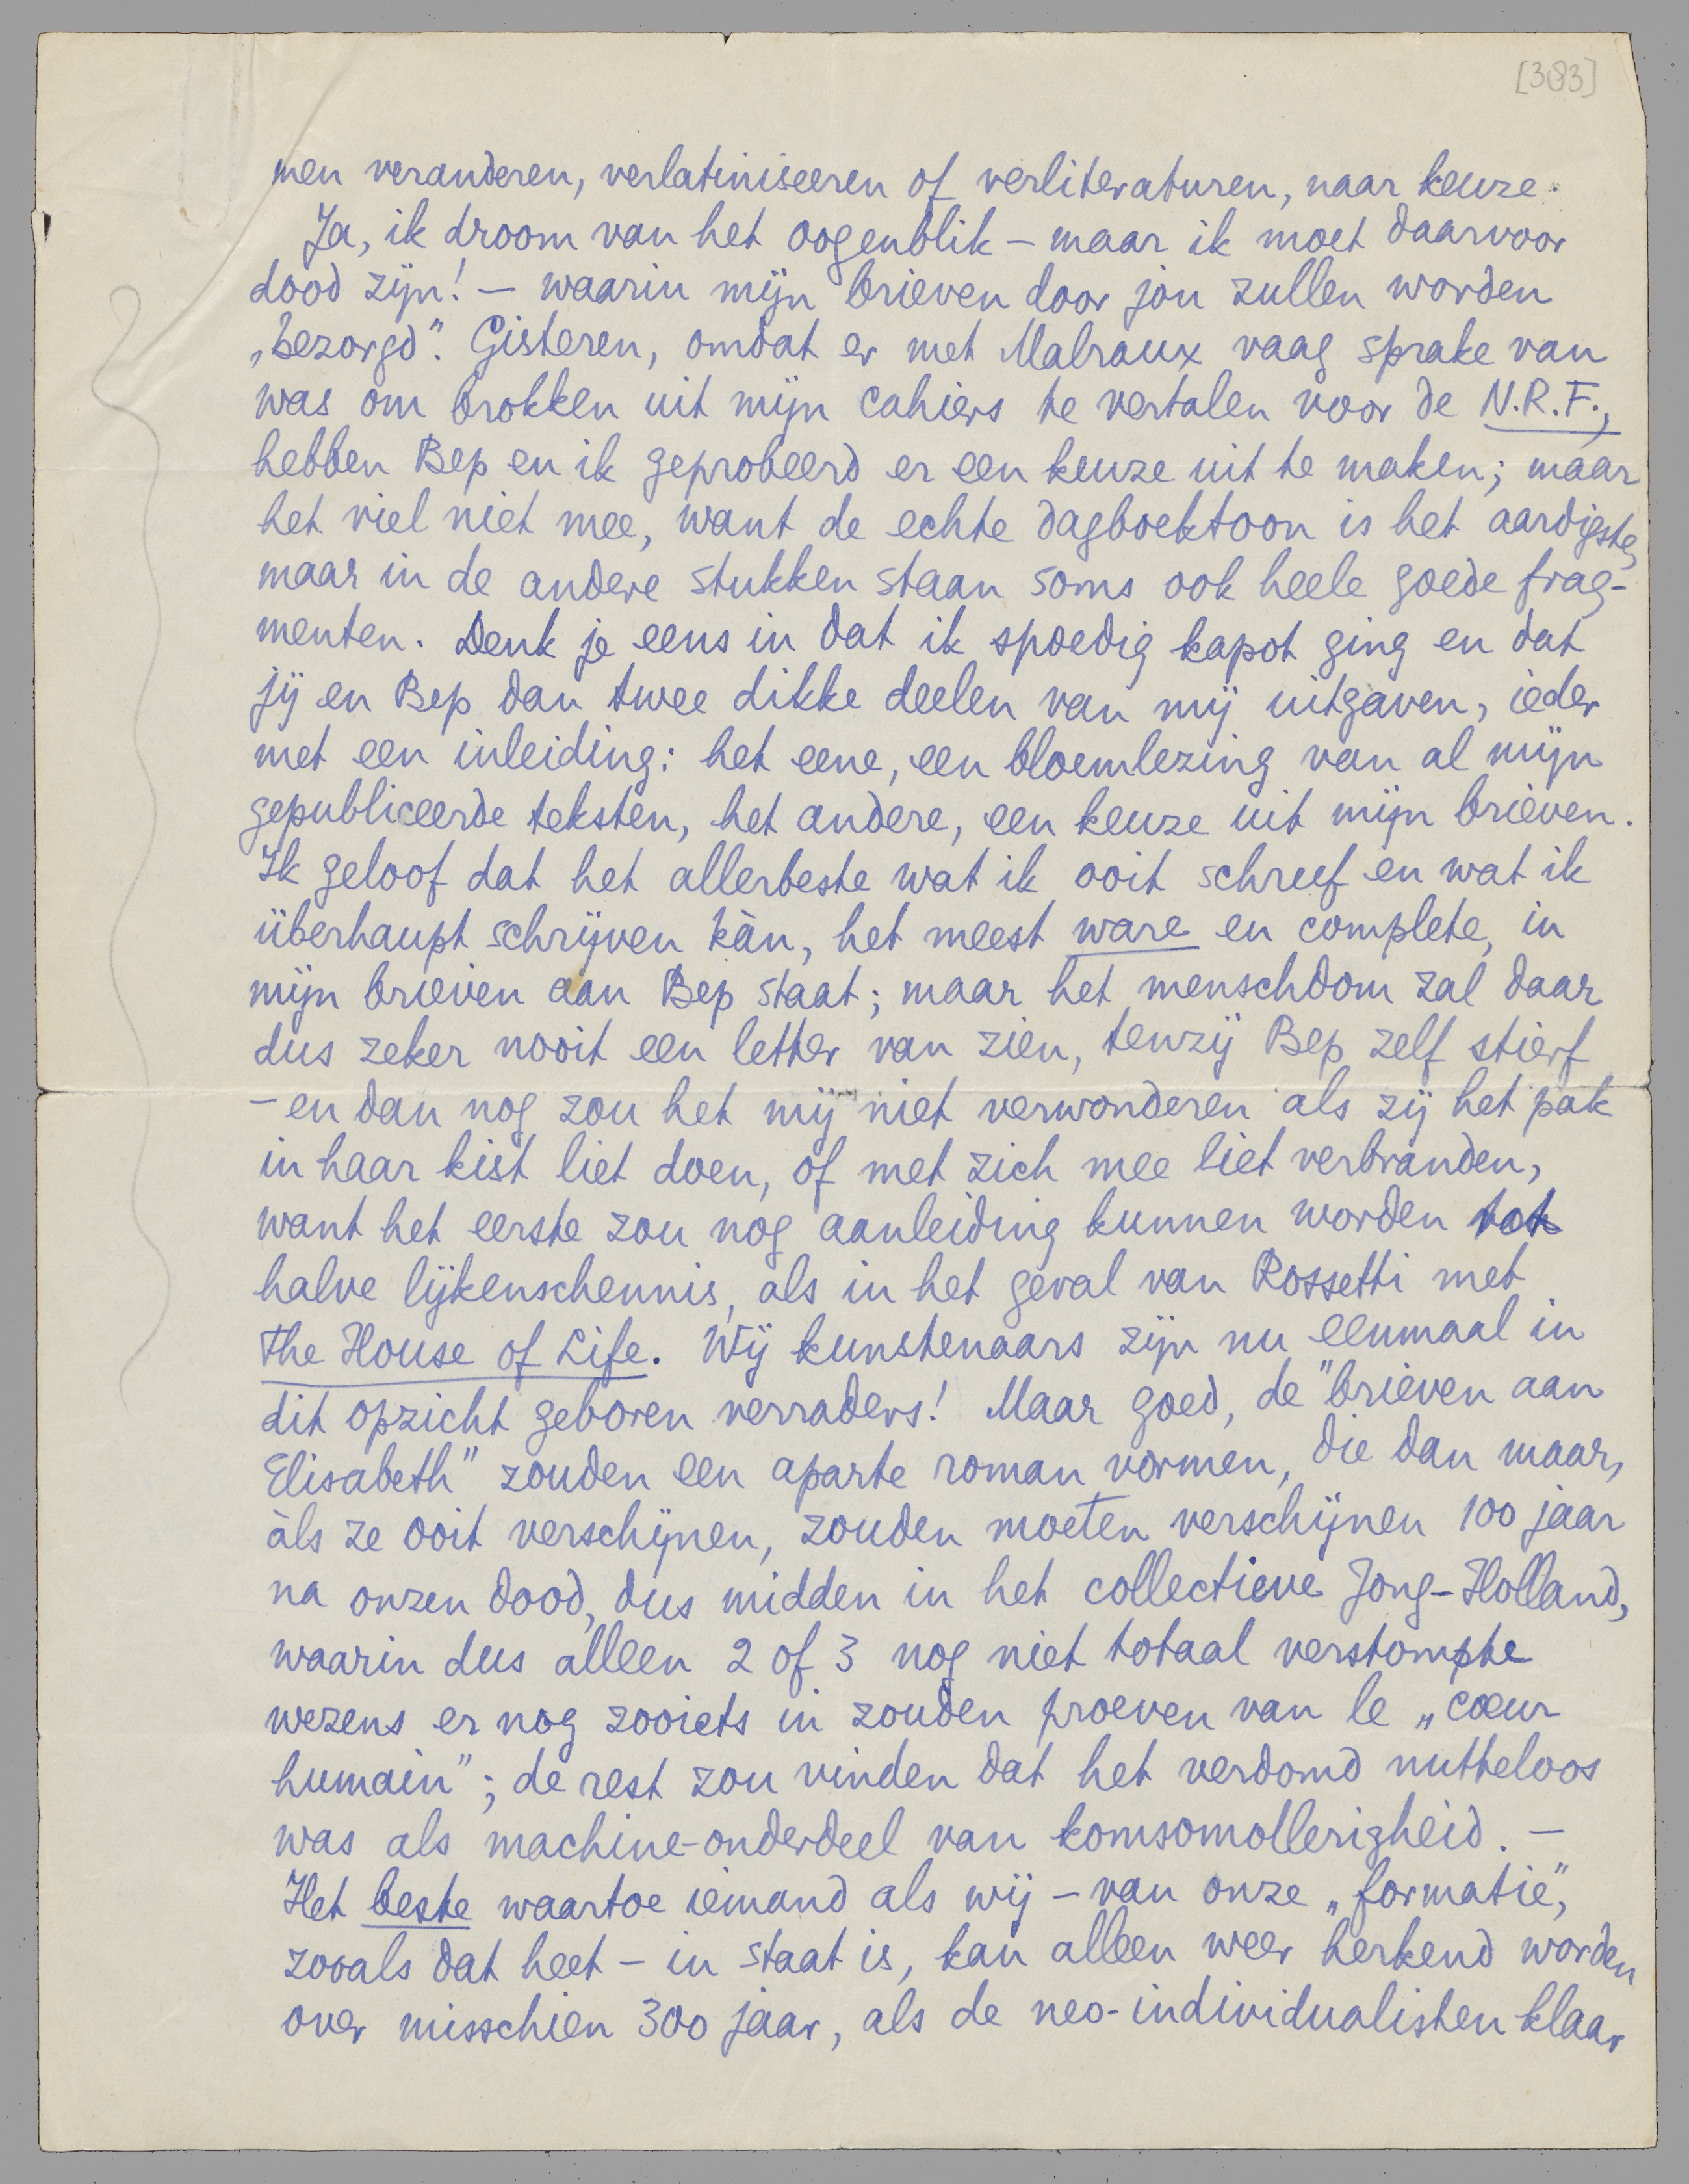 [383]
men veranderen, verlatiniseeren of verliteraturen, naar keuze.
Ja, ik droom van het oogenblik – maar ik moet daarvoor
dood zijn! – waarin mijn brieven door jou zullen worden
„bezorgd”. Gisteren, omdat er met Malraux vaag sprake van
was om brokken uit mijn cahiers te vertalen voor de N.R.F.,
hebben Bep en ik geprobeerd er een keuze uit te maken; maar
het viel niet mee, want de echte dagboektoon is het aardigste,
maar in de andere stukken staan soms ook heele goede frag-
menten. Denk je eens in dat ik spoedig kapot ging en dat
jij en Bep dan twee dikke deelen van mij uitgaven, ieder
met een inleiding: het eene, een bloemlezing van al mijn
gepubliceerde teksten, het andere, een keuze uit mijn brieven.
Ik geloof dat het allerbeste wat ik ooit schreef en wat ik
überhaupt schrijven kàn, het meest ware en complete, in
mijn brieven aan Bep staat; maar het menschdom zal daar
dus zeker nooit een letter van zien, tenzij Bep zelf stierf
– en dan nog zou het mij niet verwonderen als zij het pak
in haar kist liet doen, of met zich mee liet verbranden,
want het eerste zou nog aanleiding kunnen worden tot
halve lijkenschennis, als in het geval van Rossetti met
The House of Life. Wij kunstenaars zijn nu eenmaal in
dit opzicht geboren verraders! Maar goed, de "brieven aan
Elisabeth" zouden een aparte roman vormen, die dan maar,
àls ze ooit verschijnen, zouden moeten verschijnen 100 jaar
na onzen dood, dus midden in het collectieve Jong-Holland,
waarin dus alleen 2 of 3 nog niet totaal verstompte
wezens er nog zooiets in zouden proeven van le „cœur
humain”; de rest zou vinden dat het verdomd nutteloos
was als machine-onderdeel van komsomollerigheid. –
Het beste waartoe iemand als wij – van onze „formatie”,
zooals dat heet – in staat is, kan alleen weer herkend worden
over misschien 300 jaar, als de neo-individualisten klaar